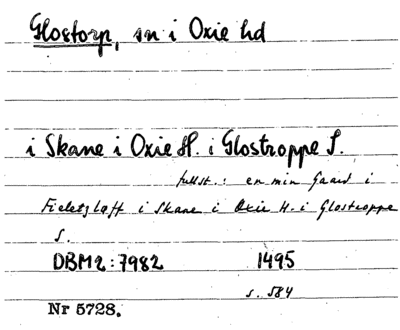 Glostorp, sn i Oxie hd
i Skane i Oxie H. i Glostroppe S.
fullst.: en min Gaard i
Fieletzleff i Skane i Oxie H. i Glostroppe
S.
DBM2:7982 1495
s. 584
Nr 5728.